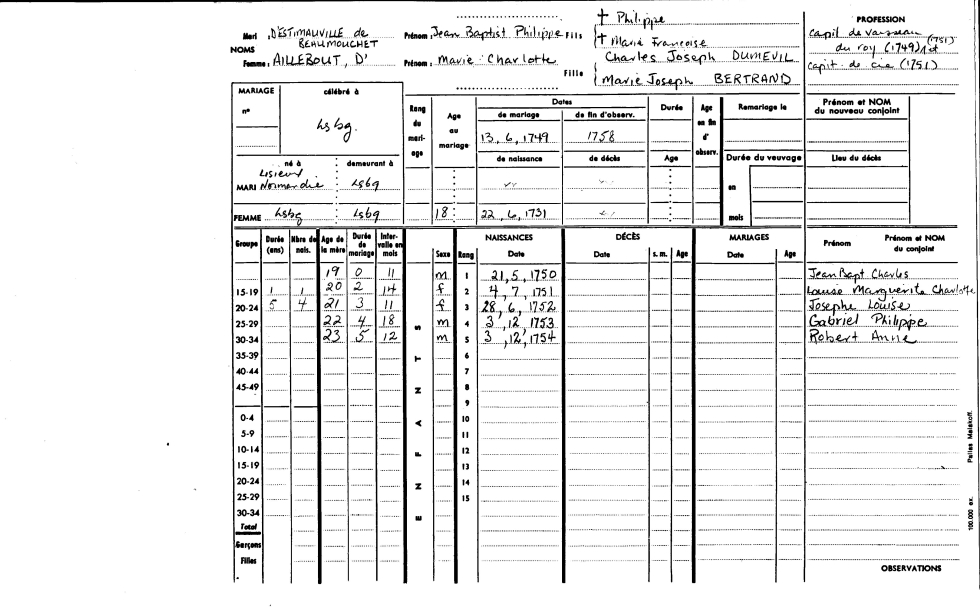 Mari D'ESTIMAUVILLE de BEAUMOUCHET Prénom Jean Baptist Philippe Fils
† Philippe
† Marie Francoise
NOMS
Femme AILLEBOUT, D' Prénom Marie Charlotte Fille
Charles Joseph DUMEVIL
Marie Joseph BERTRAND
PROFESSION
capit de vaisseau (1751)
du roy (1749) et
capit. de cie (1751)
MARIAGE célébré à
n° Lsbg.
Rang du mariage Age au mariage
Dates Durée Age en fin d'observ. Remariage le Prénom et NOM du nouveau conjoint
de mariage de fin d'observ.
13, 6, 1749 1758
de naissance de décès Age Durée du veuvage Lieu du décès
né à demeurant à en
MARI Lisieux Normandie Lsbg
mois
FEMME Lsbg Lsbg 18 22, 6, 1731
Groupe Durée (ans) Nbre de nais. Age de la mère Durée de mariage Intervalle en mois Sexe Rang NAISSANCES Date DÉCÈS Date s. m. Age MARIAGES Date Age Prénom Prénom et NOM du conjoint
19 0 11 m 1 21, 5, 1750 Jean Bapt Charles
15-19 1 1 20 2 14 f 2 4, 7, 1751 Louise Marguerite Charlotte
20-24 5 4 21 3 11 f 3 28, 6, 1752 Josephe Louise
25-29 22 4 18 m 4 3, 12, 1753 Gabriel Philippe
30-34 23 5 12 m 5 3, 12, 1754 Robert Anne
35-39 6
40-44 7
45-49 8
9
0-4 10
5-9 11
10-14 12
15-19 13
20-24 14
25-29 15
30-34
Total
Garçons
Filles
ENFANTS
OBSERVATIONS
100.000 ex. Pelias Malakoff.